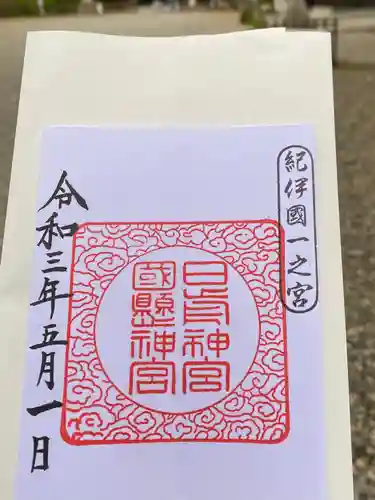 紀伊國一之宮
日前神宮
國懸神宮
令和三年五月一日